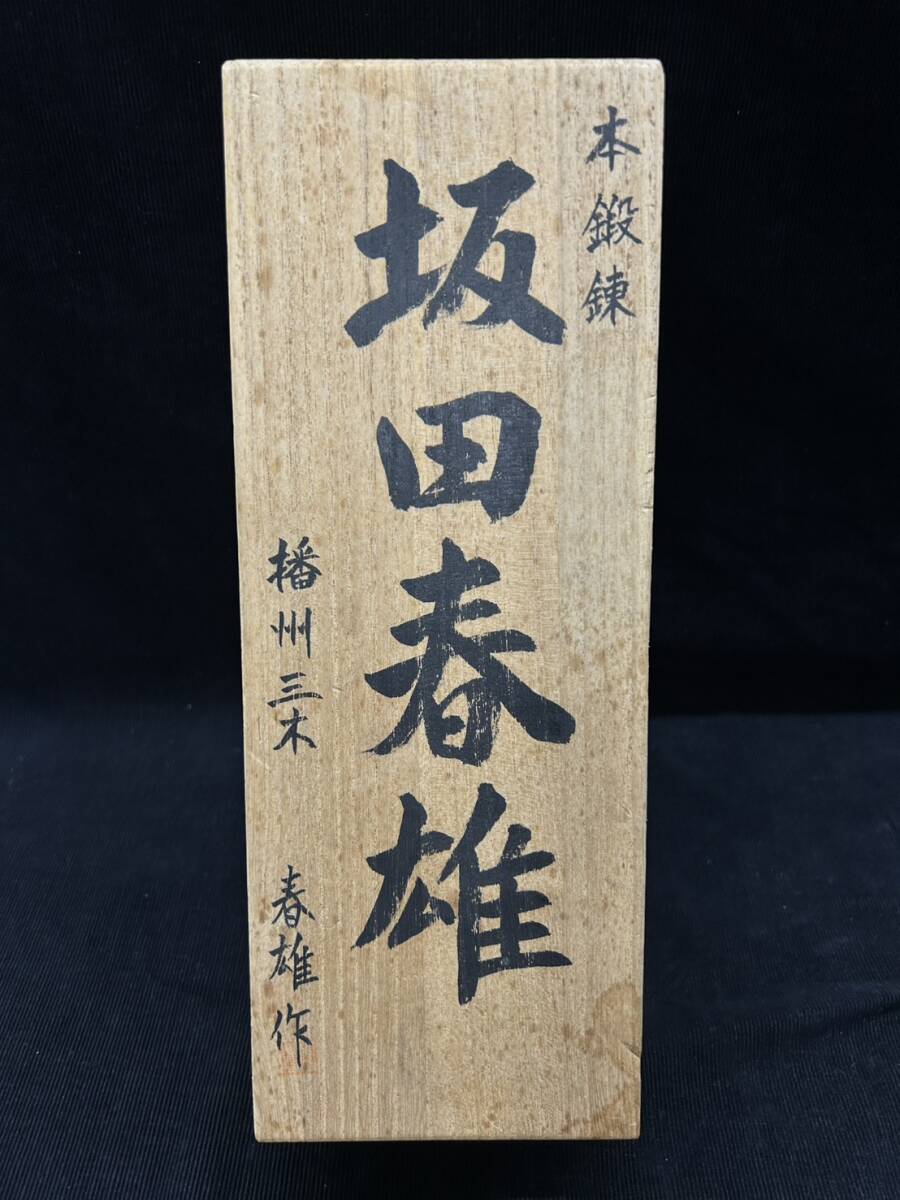 本鍛錬
坂田春雄
播州三木
春雄作